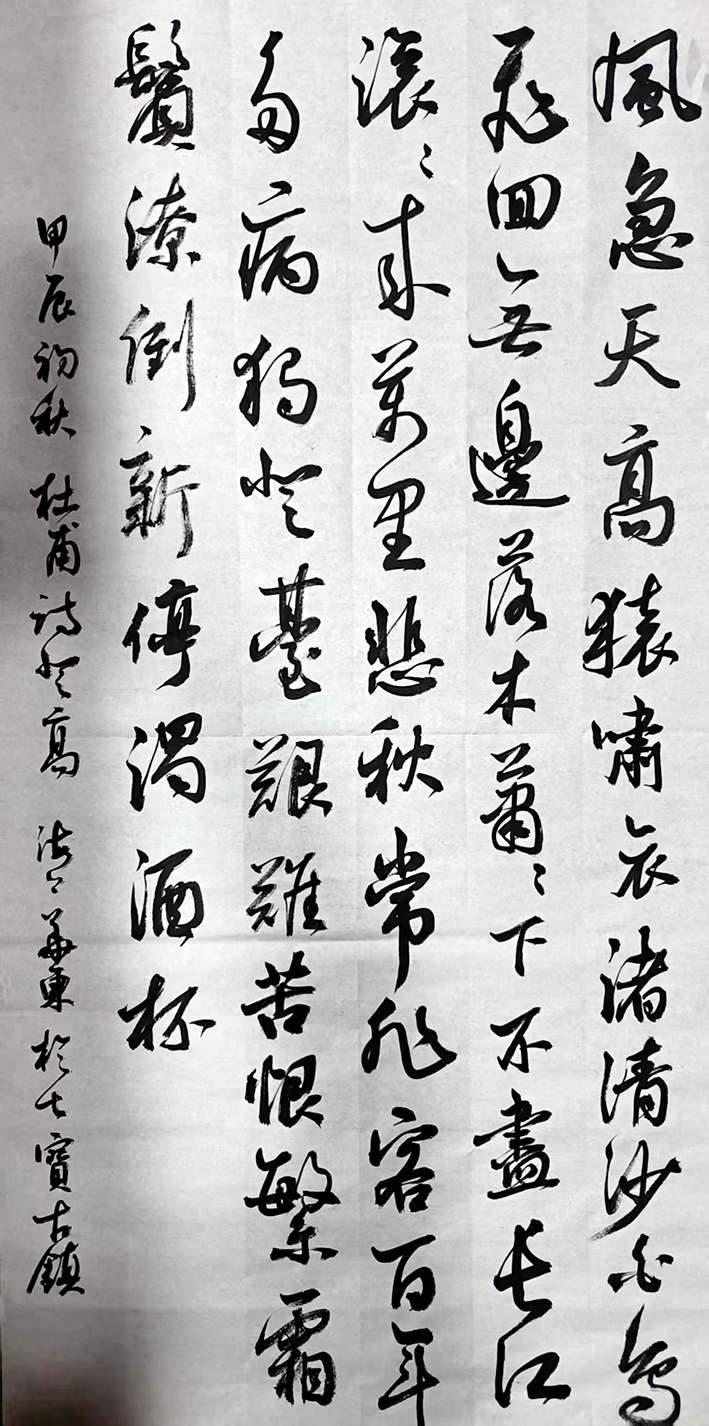 風急天高猿嘯哀渚清沙白鳥
飛回無邊落木蕭〻下不盡長江
滾〻来萬里悲秋常作客百年
多病獨登臺艱難苦恨繁霜
鬢潦倒新停濁酒杯
甲辰初秋 杜甫詩登高 華東於七寶古鎮